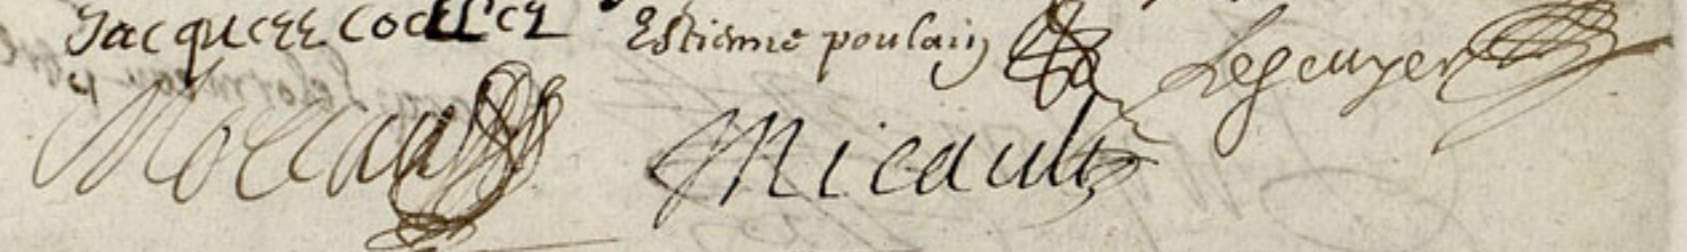 Jacques Estienne poulain Legeuyer
Moreau Micault